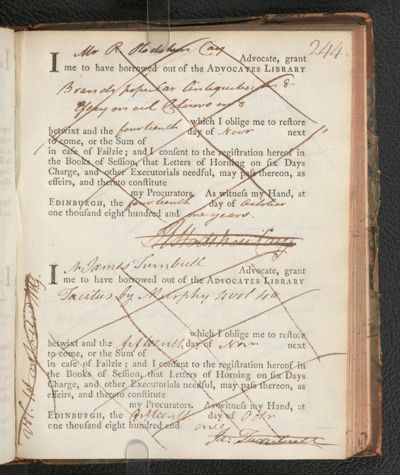 244
I Mr R Hodshon Cay Advocate, grant
me to have borrowed out of the ADVOCATES LIBRARY
Brands popular Antiquities in 8.
Essay on Colours in 8
which I oblige me to restore
betwixt and the fourteenth day of Novr next
to come, or the Sum of
in case of Failzie; and I consent to the registration hereof in
the Books of Session, that Letters of Horning on six Days
Charge, and other Executorials needful, may pass thereon, as
effeirs, and thereto constitute
my Procurators. As witness my Hand, at
EDINBURGH, the fourteenth day of October
one thousand eight hundred and one years.
R Hodshon Cay
I Mr James Turnbull Advocate, grant
me to have borrowed out of the ADVOCATES LIBRARY
Tacitus by Murphy 4 vol 4to
which I oblige me to restore
betwixt and the fifteenth day of Novr next
to come, or the Sum of
in case of Failzie; and I consent to the registration hereof in
the Books of Session, that Letters of Horning on six Days
Charge, and other Executorials needful, may pass thereon, as
effeirs, and thereto constitute
my Procurators. As witness my Hand, at
EDINBURGH, the fifteenth day of Octr
one thousand eight hundred and one
Ja. Turnbull